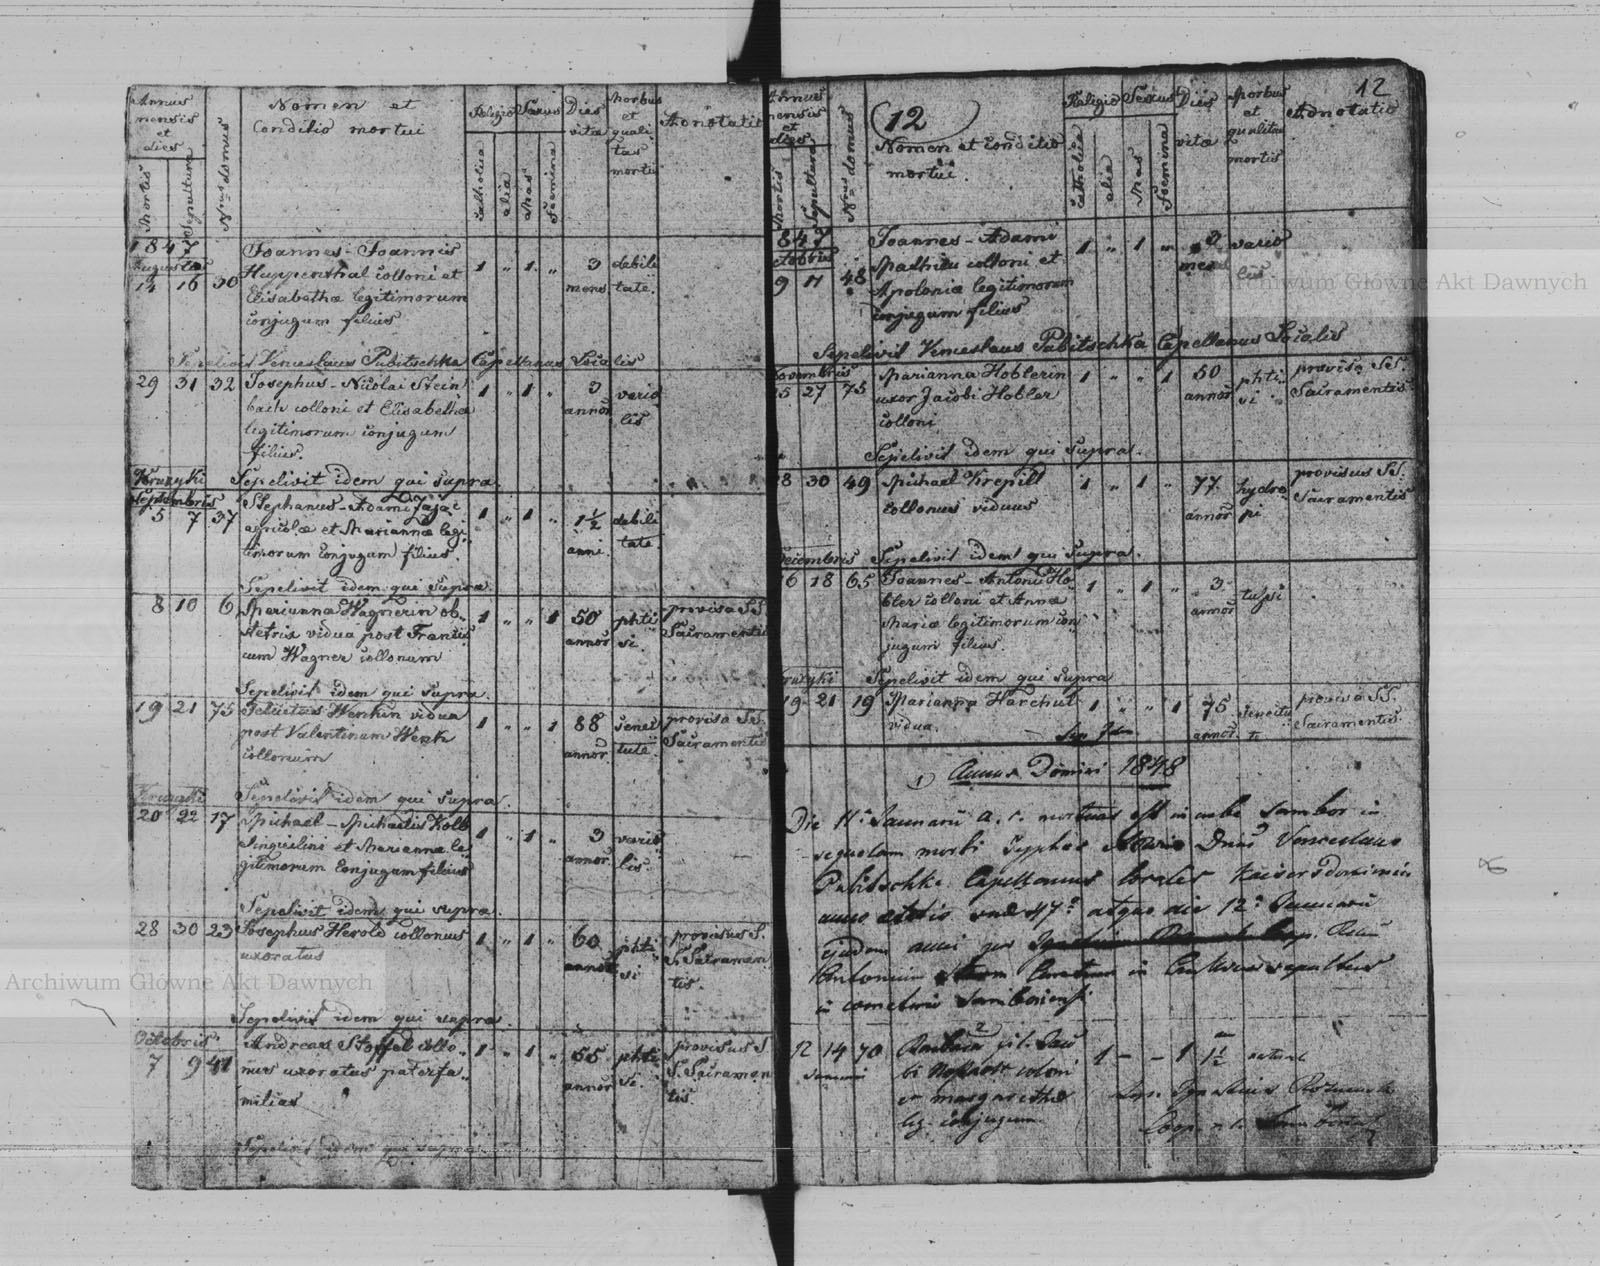 Annus mensis et dies
Mortis
Sepultura
Nrus domus
Nomen et
Conditio mortui
Religio
Catholica
alia
Sexus
Mas
Foemina
Dies vitæ
Morbus et qualitas mortis
Adnotatio
1847
Augustus
14 16 30 Joannes - Joannis 1 " 1 " 3 debili
Huppenthal colloni et mens tate.
Elisabethæ legitimorum
conjugum filius
Sepelivit Venceslaus Pabitschka Capellanus Localis
29 31 32 Josephus - Nicolai Stein 1 " 1 " 3 vario
bach colloni et Elisabethæ annor lis
legitimorum conjugum
filius.
Kruzyki Sepelivit idem qui supra
Septembris
5 7 37 Stephanus - Adami 1 " 1 " 1½ debili
agricolæ et Mariannæ legi anni tate.
timorum conjugum filius.
Sepelivit idem qui supra
8 10 6 Marianna Wagnerin ob 1 " " 1 50 phti provisa SS.
stetrix vidua post Francis annor si. Sacramentis
cum Wagner collonum
Sepelivit idem qui supra.
19 21 75 Felicitas Wenkin vidua 1 " " 1 88 senec provisa SS.
post Valentinum Wenk annor tute. Sacramentis
collonum
Kruzyki Sepelivit idem qui supra.
20 22 17 Michael - Michaelis Kolb 1 " 1 " 3 vario
Inquilini et Mariannæ le annor lis.
gitimorum conjugum filius
Sepelivit idem qui supra.
28 30 23 Josephus Herold collonus 1 " 1 " 60 phti provisus S.
uxoratus annor si S. Sacramen
tis.
Sepelivit idem qui supra
Octobris
7 9 41 Andreas Stoffel collo 1 " 1 " 55 phti provisus S
nus uxoratus paterfa annor si. S. Sacramen
milias tis.
Sepelivit idem qui supra
12
12
Annus mensis et dies
Mortis
Sepultura
Nrus domus
Nomen et conditio
mortui.
Religio
Catholica
alia
Sexus
Mas
Foemina
Dies vitæ
Morbus et qualitas mortis
Adnotatio
847
ctobris
9 11 48 Joannes - Adami 1 " 1 " 3 vario
colloni et mens lis
Apoloniæ legitimorum
conjugum filius
Sepelivit Venceslaus Pabitschka Capellanus Localis
ovembris
25 27 75 Marianna Hoblerin 1 " " 1 50 phti provisa SS.
uxor Jacobi Hobler annor si Sacramentis
colloni.
Sepelivit idem qui supra.
28 30 49 Michael Krepill 1 " 1 " 77 hydro provisus SS.
collonus viduus annor pi. Sacramentis
ecembris Sepelivit idem qui supra.
16 18 65 Joannes - Antonii Ho 1 " 1 " 3 tussi
bler colloni et Annæ annor
Mariæ legitimorum con
jugum filius.
ruzyki Sepelivit idem qui supra
19 21 19 Marianna Harchut 1 " " 1 75 senectu provisa SS.
vidua. annor te Sacramentis.
Sep. Idem
1) Annus Domini 1848
Die 11a Januarii a. c. mortuus est in urbe Sambor in
sequelam morbi Typhos Dnus Venceslaus
Pabitschka Capellanus localis Kaisersdorfensis
anno ætatis suæ 47o atque die 12a Januarii
ejusdem anni per
Antonium in sepultus
in cometerio Samboriensi
2
12 14 70 Barbara fil. Jaco 1 - - 1 1½ natural
Januarii bi coloni
et Margarethæ Sep. Ignatius
leg. conjugum Coop.